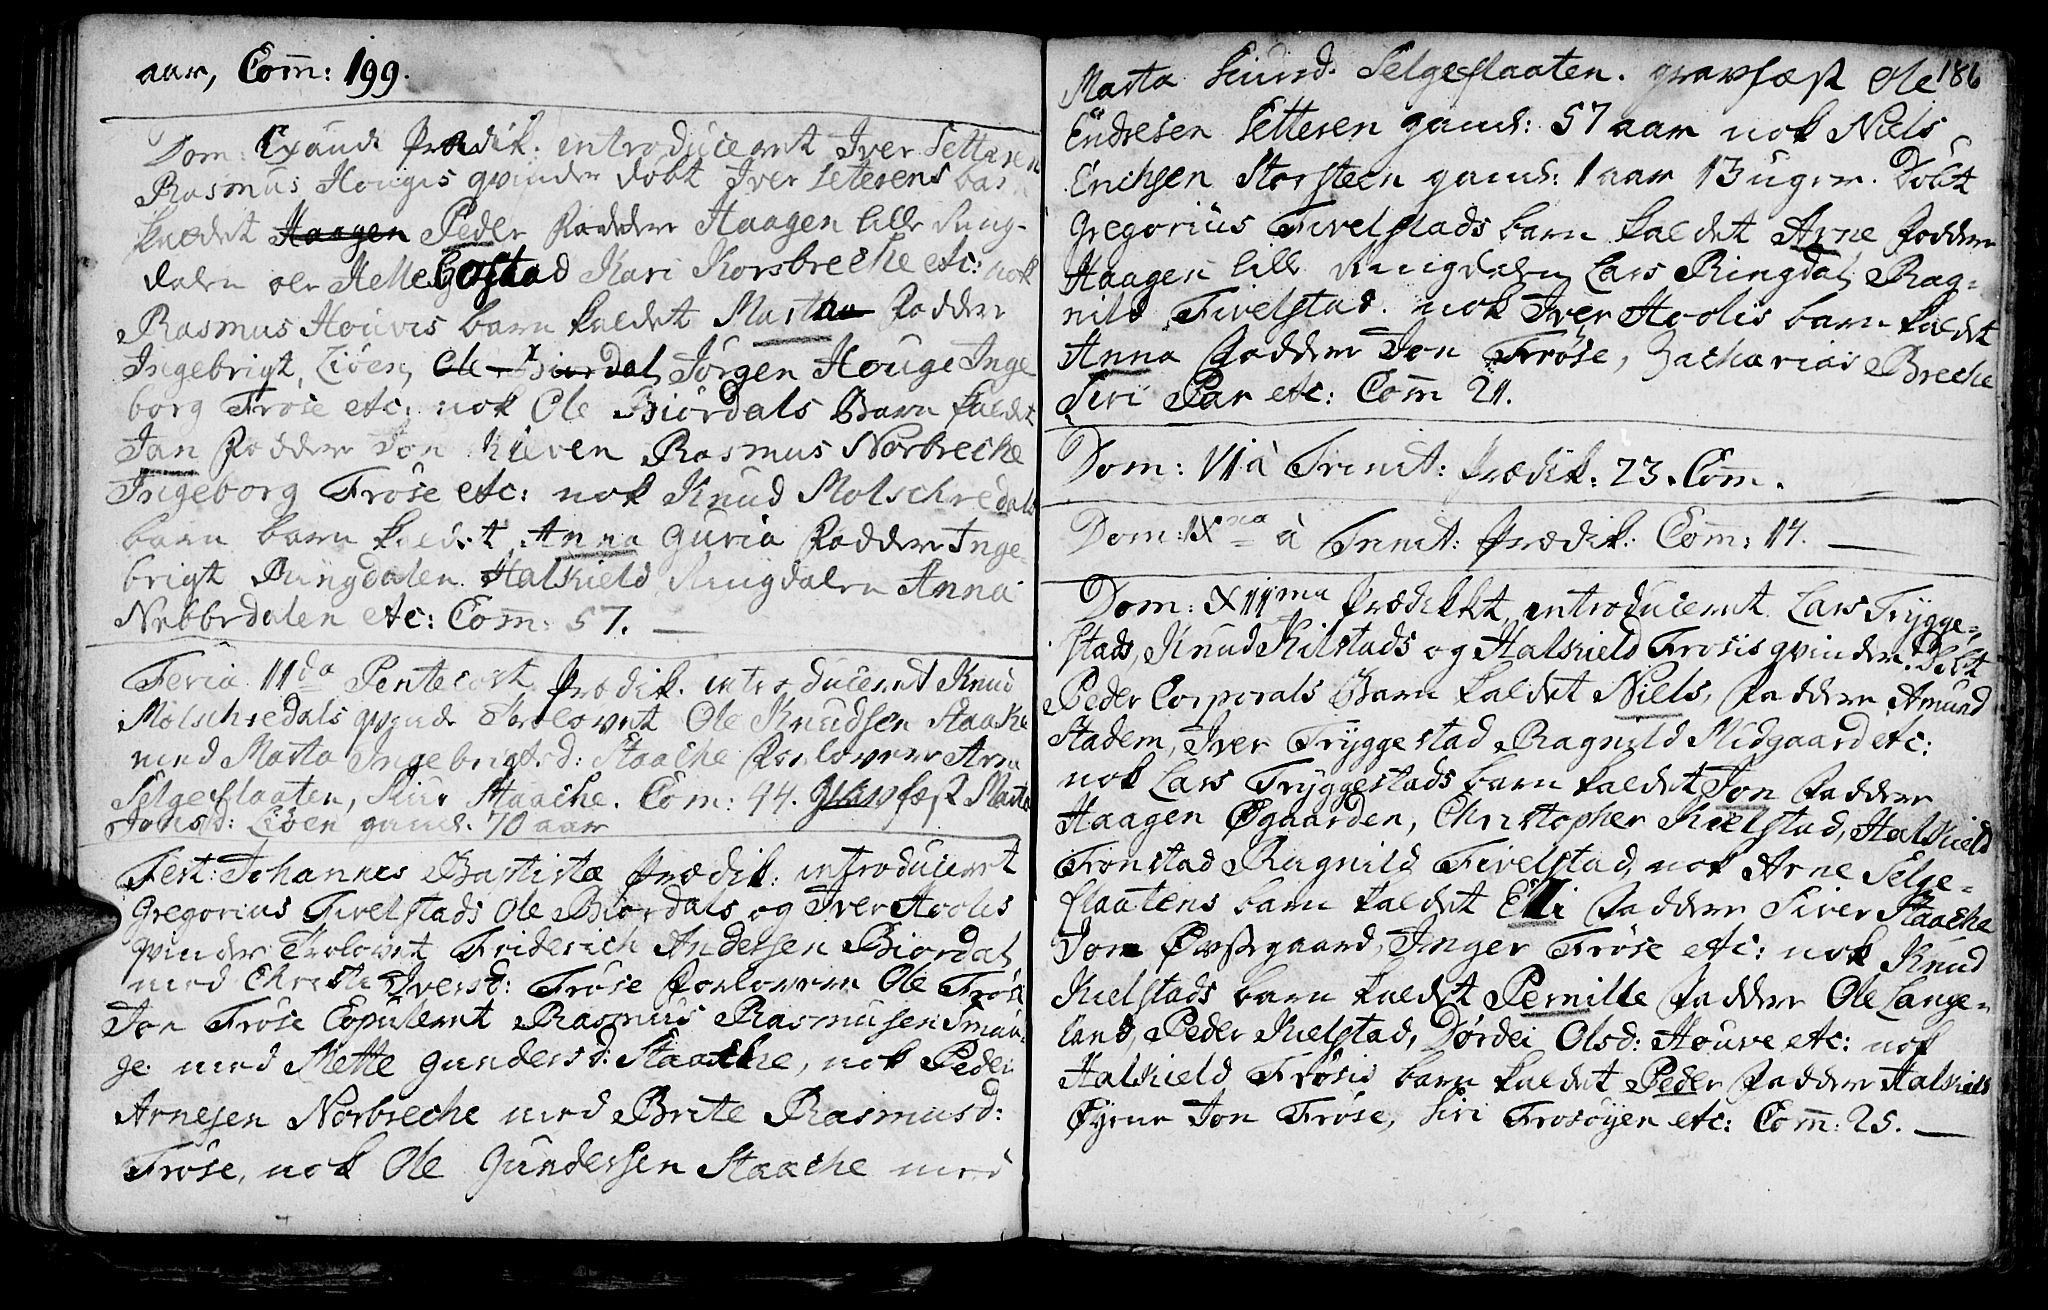 aar, Com̄: 199.
Dom: Exaudi Prædik. introduceret Iver Setteren
Rasmus Houges qvinder döbt Iver Seterens bar
kaldet Haagen Peder Fadder Haagen lille Ring-
dalen Kari Korsbreche etc: nok
Rasmus Houvis barn kaldet Martha Fadder
Ingebrigt Liöen, Ole Biördal Jörgen Houge Inge
borg Fröse etc: nok Ole Biördals Barn kaldet
Jan Fadder Jon Rasmus Norbreche
Ingeborg Fröse etc: nok Knud Molschredals
barn barn kaldet Anna Guria Fadder Inge-
brigt Ringdalen Halskield Ringdalen Anna
Nebberdalen etc: Com: 57.
Feria IIda Pentecost Prædik. introduceret Knud
Molschredals qvinde Troloved Ole Knudsen Staache
med Marta Ingebrigtsd: Staache Forlovere Arne
Selgeflaaten, Staache. Com: 94. Gravfæst Marta
Jonsd: Liöen gaml. 70 aar
Fest: Johannes Baptistæ Prædik: introduceret
Gregorius Fivelstads Ole Biördals og Iver Aoolis
qvinder Trolovet Friderich Andersen Biördal
med Christi Iversd: Fröse Forlovere Ole Fröse
Jon Fröse Copuleret Rasmus Rasmusen Smaa-
ge med Mette Gundersd: Staache, nok Peder
Arnesen Norbreche med Brite Rasmusd:
Fröse, nok Ole Gundersen Staache med
186
Marta Siursd. Selgeflaaten. gravfæst Ole
Endresen Setteren gaml: 57 aar nok Niels
Erichsen Storsteen gaml: 1 aar 13 uger. Döbt
Gregoriüs Fivelstads barn kaldet Arne Fadder
Haagen lille Ringdalen Lars Ringdal Rag-
nild Fivelstad. nok Iver Aoolis barn kaldet
Anna Fadder Jon Fröse, Zacharias Breche
Siri etc: Com̄ 21.
Dom: VII à Trinit: Prædik. 23. Com̄.
Dom: IXna à Trinit: Prædik: Com̄: 14.
Dom: XIIma Prædikt, introduceret Lars Trygge-
stads, Knud Kilstads og Halskield Frösis qvinder. Döbt
Peder Corporals Barn kaldet Niels, Fadder Amund
Stadem, Iver Tryggestad Ragnild Midgaard etc:
nok Lars Tryggestads barn kaldet Jon Fadder
Haagen Øgaarden, Christopher Kielstad, Halskield
Tronstad Ragnild Fivelstad, nok Arne Selge-
flaatens barn kaldet Elli Fadder Siver Staache
Jon Östgaard, Inger Fröse etc: nok Knud
Kielstads barn kaldet Pernille Fadder Ole Lange-
land, Peder Kielstad, Dördei Olsd: Houve etc: nok
Halskield Frösis barn kaldet Peder Fadder Halskield
Øyene Jon Fröse, Siri Frosöyen etc: Com̄: 25.